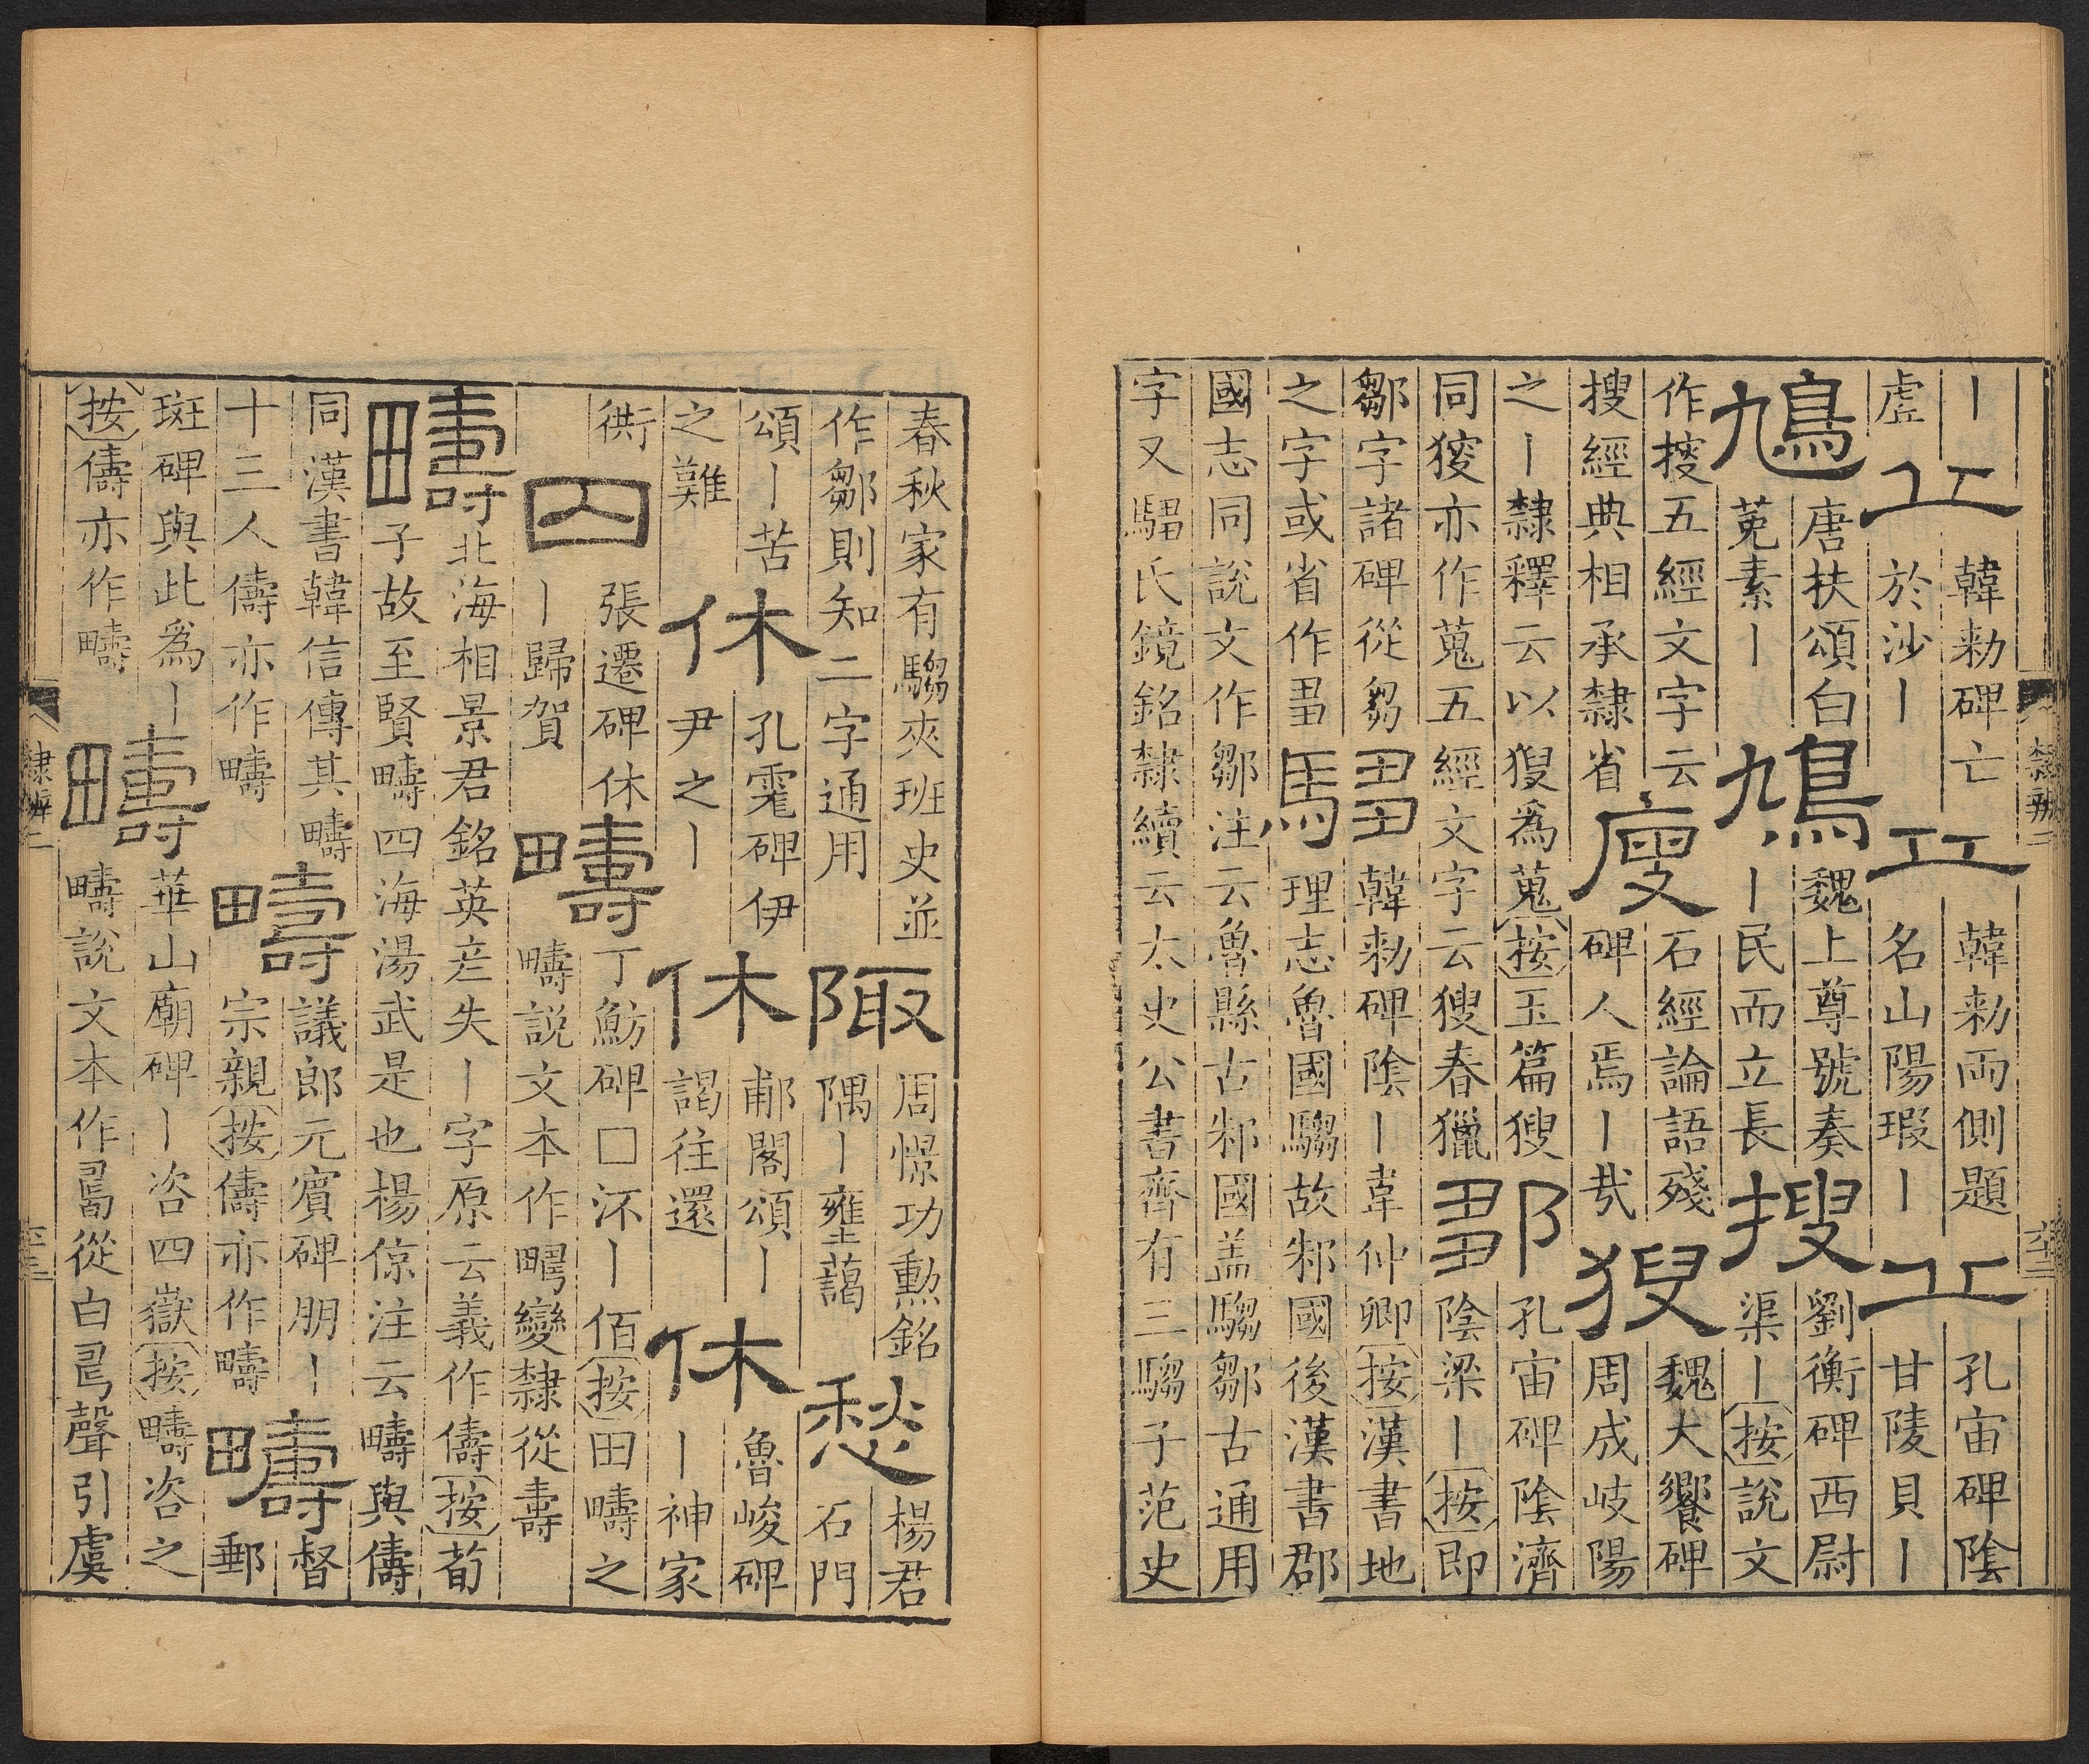 丨
虛
丘
韓勑碑亡
於沙丨
丘
韓勑兩側題
名山陽瑕丨
丘
孔宙碑陰
甘陵貝丨
鳩
唐扶頌白
菟素丨
鳩
魏上尊號奏
丨民而立長
搜
劉衡碑西尉
渠丨按說文
作㨮五經文字云
搜經典相承隸省
廋
石經論語殘
碑人焉丨㢤
獀
魏大饗碑
周成岐陽
之丨隸釋云以獀爲蒐按玉篇獀
同獶亦作蒐五經文字云獀春獵
鄒
孔宙碑陰濟
陰梁丨按即
鄒字諸碑從芻
之字或省作
騶
韓勑碑陰丨韋仲卿按漢書地
理志魯國騶故邾國後漢書郡
國志同說文作鄒注云魯縣古邾國盖騶鄒古通用
字又騶氏鏡銘隸續云太史公書齊有三騶子范史
隸辨二
春秋家有騶夾班史並
作鄒則知二字通用
陬
周憬功勳銘
隅丨壅藹
愁
楊君
石門
頌丨苦
之難
休
孔霔碑伊
尹之丨
休
郙閣頌丨
謁往還
休
魯峻碑
丨神家
衖
囚
張遷碑休
丨歸賀
疇
丁魴碑□沠丨佰按田疇之
疇說文本作變隸從壽
疇
北海相景君銘英彦失丨字原云義作儔按荀
子故至賢疇四海湯武是也楊倞注云疇與儔
同漢書韓信傳其疇
十三人儔亦作疇
疇
議郎元賓碑朋丨
宗親按儔亦作疇
疇
督
郵
斑碑與此爲丨
按儔亦作疇
疇
華山廟碑丨咨四嶽按疇咨之
疇說文本作𠷎從白聲引虞
隸辨二